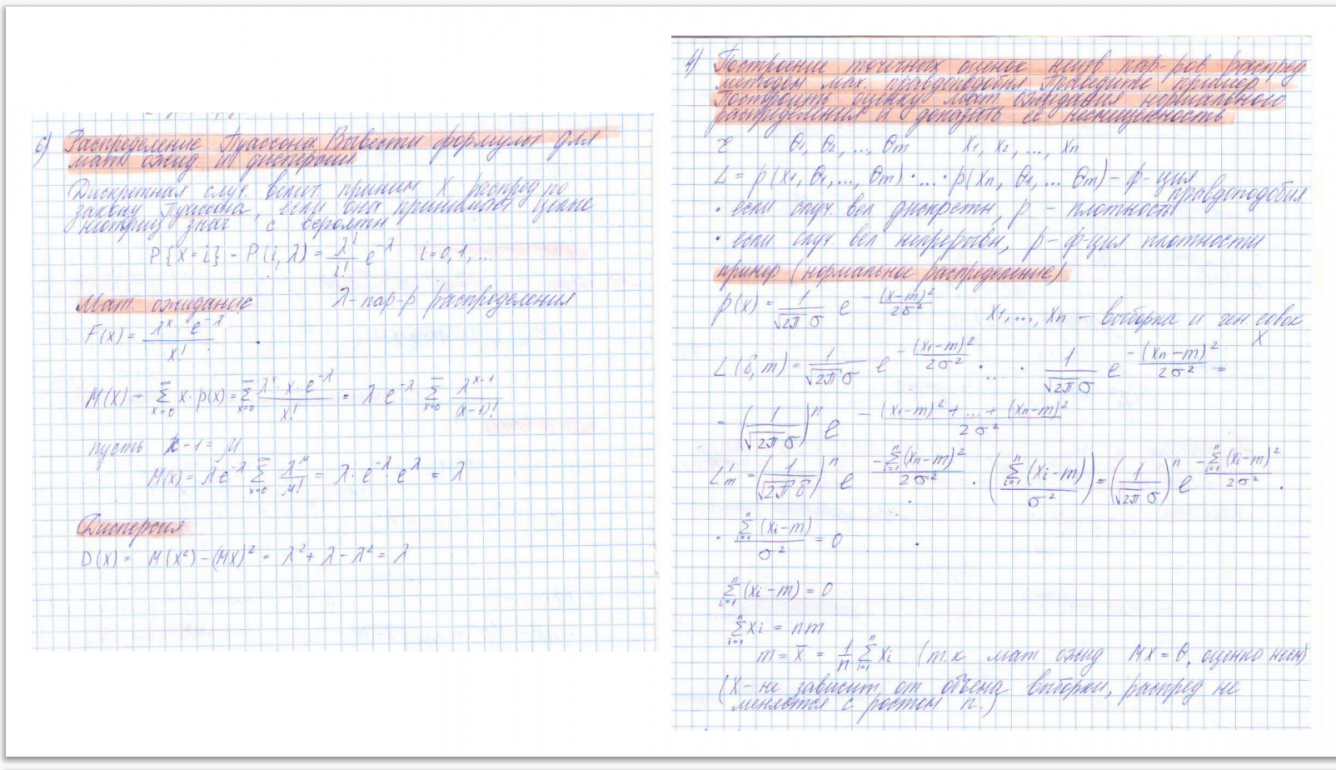 6) Распределение Пуассона. Вывести формулы для
мат. ожид и дисперсии
Дискретная случ. велич. приним X распред по
закону Пуассона, если она принимает целые
неотриц знач с вероятн
P{X=i} = P(i,λ) = λ^i/i! e^-λ   i=0,1,...
Мат. ожидание   λ-пар-р распределения
F(x) = λ^x · e^-λ / x!
M(X) = Σ_{x=0}^∞ x·p(x) = Σ_{x=0}^∞ λ^x · x · e^-λ / x! = λ·e^-λ Σ_{x=0}^∞ λ^{x-1}/(x-1)!
пусть x-1 = μ
M(x) = λe^-λ Σ_{x=0}^∞ λ^μ/μ! = λ·e^-λ·e^λ = λ
Дисперсия
D(X) = M(X²)-(MX)² = λ²+λ-λ² = λ
Построение точечных оценок неизв пар-ров распред
методом мах. правдоподобия. Приведите пример
Построить оценку мат ожидания нормального
распределения и доказать её несмещенность
θ1, θ2, ..., θm   x1, x2, ..., xn
L = p(x1, θ1,..., θm)·...·p(xn, θ1,... θm) – ф-ция
правдоподобия
· если случ. вел дискретн, p – плотность
· если случ вел непрерывн, p-ф-ция плотности
пример (нормальное распределение)
p(x) = 1/(√2π σ) e^{-(x-m)²/2σ²}   x1,..., xn – выборка и ген совок
X
L(σ, m) = 1/(√2π σ) e^{-(x1-m)²/2σ²} · ... · 1/(√2π σ) e^{-(xn-m)²/2σ²} =
= (1/(√2π σ))^n e^{-((x1-m)²+...+(xn-m)²)/2σ²}
L'm = (1/(√2π σ))^n e^{-Σ_{i=1}^n (xn-m)²/2σ²} · (Σ_{i=1}^n (xi-m)/σ²) = (1/(√2π σ))^n e^{-Σ_{i=1}^n (xi-m)²/2σ²} ·
· Σ_{i=1}^n (xi-m)/σ² = 0
Σ_{i=1}^n (xi-m) = 0
Σ_{i=1}^n xi = nm
m = x̄ = 1/n Σ_{i=1}^n xi (т.к мат ожид MX = θ, оценка несм)
(X- не зависит от объема выборки, распред не
меняются с ростом n.)